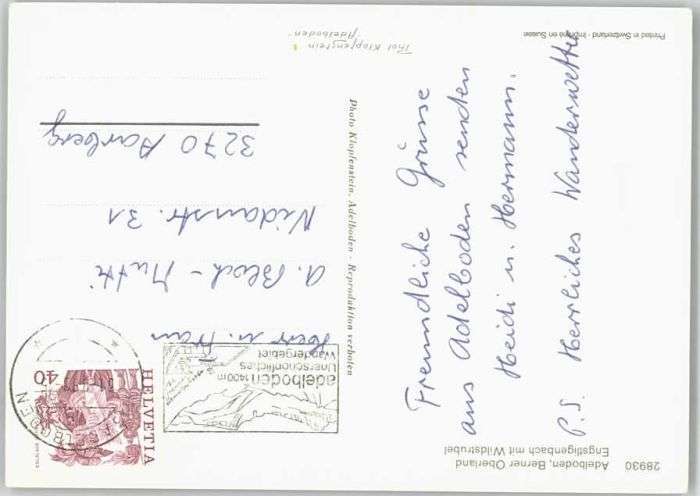 28930
Adelboden, Berner Oberland
Engstligenbach mit Wildstrubel
Freundliche Grüsse
aus Adelboden senden
Heidi u. Hermann.
P.S. Herrliches Wanderwetter
Photo Klopfenstein, Adelboden - Reproduktion verboten
adelboden 1400m
Unerschöpfliches
Wandergebiet
HELVETIA
40
Herr u. Frau
A.
Nidaustr. 31
3270 Aarberg
Phot Klopfenstein
Adelboden
Printed in Switzerland - Imprimé en Suisse